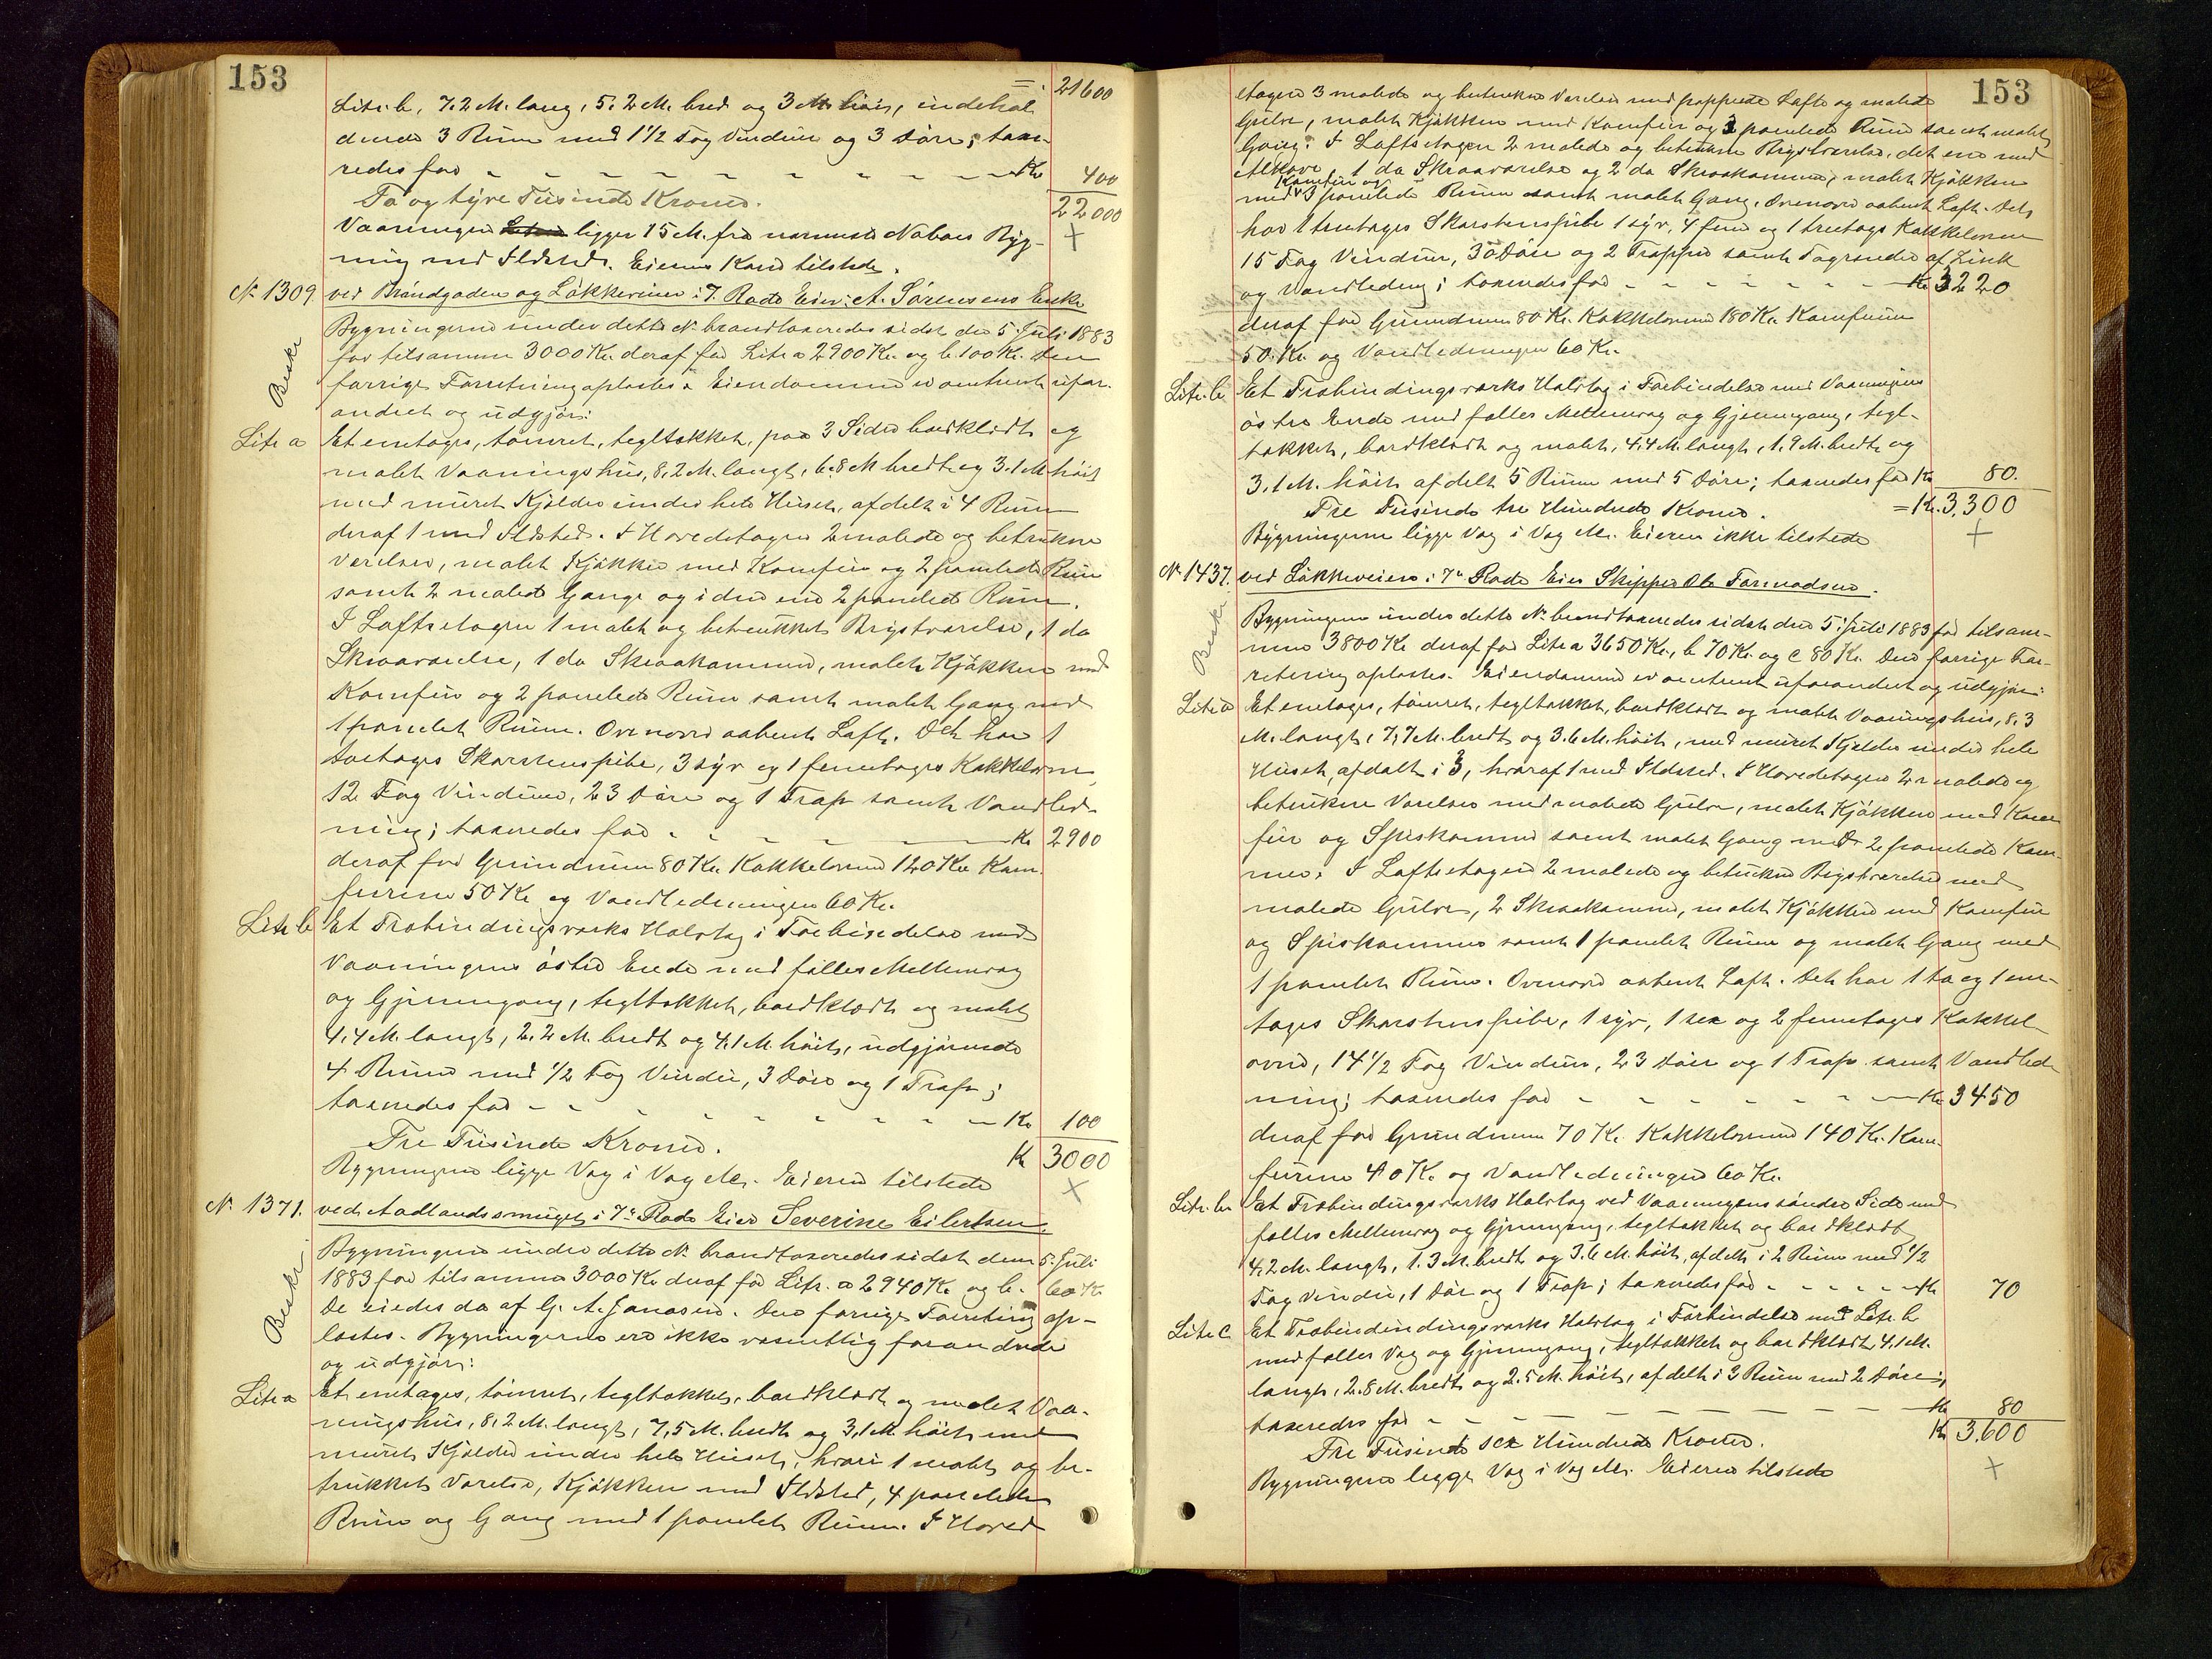 153
= 21600
Litr. b, 7.2 M. lang, 5.2 M. bred og 3 M. høit, indehol
dende 3 Rum med 1½ Fag Vinduer og 3 Døre; taxe-
redes for - - - - - - - - Kr. 400
To og tyve Tusinde Kroner. 22000
Vaaningen ligger 15 M. fra nærmeste Nabos Byg- +
ning med Ildsted. Eierens Kone tilstede.
No 1309. ved Brándgaden og Løkkeveien i 7. Rode Eier: A. Sørensens Enke
Bygningerne under dette No brandtaxeredes sidst den 5. Juli 1883
for tilsammen 3000 Kr. deraf for Litr a 2900 Kr. og b 100 Kr. Den
Beskr.
forrige Forretning oplæstes. Eiendommene er omtrent ufor-
andret og udgjør:
Litr a Et enetages, tømret, tegltækket, paa 3 Sider bordklædt og
malet Vaaningshus, 8.2 M. langt, 6.8 M bredt og 3.1 M høit
med muret Kjælder under hele Huset, afdelt i 4 Rum
deraf 1 med Ildsted. I Hovedetagen 2 malede og betrukne
Værelser, malet Kjøkken med Komfur og 2 panelede Rum
samt 2 malede Gange og i den ene 2 panelede Rum.
I Loftsetagen 1 malet og betrukket Brystværelse, 1 do
Skraaværelse, 1 do Skraakammer, malet Kjøkken med
Komfur og 2 panelede Rum samt malet Gang med
1 panelet Rum. Ovenover aabent Loft. Det har 1
toetages Skorstenspibe, 3 syv og 1 femetages Kakkelovne
12 Fag Vinduer, 23 Døre og 1 Trap samt Vandled-
ning; taxeredes for - - - - - Kr 2900
deraf for Grundmur 80 Kr. Kakkelovne 120 Kr Kom-
furerne 50 Kr og Vandledningen 60 Kr.
Litr b Et Træbindingsværks Halvtag i Forbindelse med
Vaaningens østre Ende med fælles Mellemvæg
og Gjennemgang, tegltækket, bordklædt og malet
4.4 M. langt, 2.2 M. bredt og 4.1 M. høit, udgjørende
4 Rum med ½ Fag Vindu, 3 Døre og 1 Trap;
taxeredes for - - - - - - - - Kr 100
Tre Tusinde Kroner. Kr 3000
Bygningerne ligge Væg i Væg etc. Eieren tilstede +
No 1371. ved Aadlandssmuget i 7de Rode Eier Severine Eilertsen
Bygningerne under dette No brandtaxeredes sidst den 5. Juli
1883 for tilsammen 3000 Kr deraf for Litr. a 2940 Kr og b. 60 Kr
Beskr.
De eiedes da af G. A. Jonasen. Den forrige Forretning op-
læstes. Bygningerne ere ikke væsentlig forandrede
og udgjør:
Litr a Et enetages, tømret, tegltækket, bordklædt og malet Vaa-
ningshus, 8.2 M. langt, 7.5 M. bredt og 3.1 M. høit med
muret Kjælder under hele Huset, hvori 1 malet og be-
trukket Værelse, Kjøkken med Ildsted, 4 panelede
Rum og Gang med 1 panelet Rum. I Hoved
153
etagen 3 malede og betrukne Værelser med pappede Lofte og malede
Gulve, malet Kjøkken med Komfur og 3 panelede Rum samt malet
Gang. I Loftsetagen 2 malede og betrukne Brystværelse, det ene med
Alkove, 1 do Skraaværelse og 2 do Skraakammer, malet Kjøkken
med Komfur og 3 panelede Rum samt malet Gang. Ovenover aabent Loft. Det
har 1 treetages Skorstenspibe 1 syv, 4 fem og 1 treetags Kakkelovne
15 Fag Vinduer, 30 Døre og 2 Trapper samt Tagrender af Zink
og Vandledning; taxeredes for - - - - - - Kr 3220
deraf for Grundmur 80 Kr. Kakkelovne 180 Kr. Komfurer
50 Kr. og Vandledningen 60 Kr.
Litr. b Et Træbindingsværks Halvtag i Forbindelse med Vaaningens
østre Ende med fælles Mellemvæg og Gjennemgang, tegl-
tækket, bordklædt og malet, 4.4 M. langt, 1.9 M. bredt og
3.1 M. høit afdelt 5 Rum med 5 Døre; taxeredes for Kr 80.
Tre Tusinde tre Hundrede Kroner. = Kr. 3,300
Bygningerne ligge Væg i Væg etc. Eieren ikke tilstede +
No 1437. ved Løkkeveien i 7de Rode Eier Skipper Ole Tormodsen.
Bygningerne under dette No brandtaxeredes sidst den 5. Juli 1883 for tilsam-
men 3800 Kr deraf for Litr a 3650 Kr., b 70 Kr. og c 80 Kr. Den forrige For-
Beskr.
retning oplæstes. Eiendommene er omtrent uforandret og udgjør:
Litr a Et enetages, tømret, tegltækket, bordklædt og malet Vaaningshus, 8.3
M. langt, 7.7 M. bredt og 3.6 M. høit, med muret Kjælder under hele
Huset, afdelt i 3, hvoraf 1 med Ildsted. I Hovedetagen 2 malede og
betrukne Værelser med malede Gulve, malet Kjøkken med Kom-
fur og Spiskammer samt malet Gang med 2 panelede Kam-
mer. I Loftsetagen 2 malede og betrukne Brystværelser med
malede Gulve, 2 Skraakammer, malet Kjøkken med Komfur
og Spiskammer samt 1 panelet Rum og malet Gang med
1 panelet Rum. Ovenover aabent Loft. Det har 1 to og 1 ene-
tages Skorstenspibe, 1 syv, 1 sex og 2 femetages Kakkel-
ovne, 14½ Fag Vinduer, 23 Døre og 1 Trap samt Vandled-
ning; taxeredes for - - - - - - Kr 3450
deraf for Grundmur 70 Kr. Kakkelovne 140 Kr. Kom-
furerne 40 Kr. og Vandledningen 60 Kr.
Litr. b Et Træbindingsværks Halvtag ved Vaaningens søndre Side med
fælles Mellemvæg og Gjennemgang, tegltækket og bordklædt
4.2 M. langt, 1.3 M. bredt og 3.6 M. høit, afdelt i 2 Rum med ½
Fag Vindu, 1 Dør og 1 Trap; taxeredes for - - - - - Kr 70
Litr c Et Træbindindingsværks Halvtag i Forbindelse med Litr. b
med fælles Væg og Gjennemgang, tegltækket og bordklædt, 4.1 M.
langt, 2.8 M. bredt og 2.5 M. høit, afdelt i 3 Rum med 2 Døre;
taxeredes for - - - - - - - - Kr 80
Tre Tusinde sex Hundrede Kroner. Kr 3,600
Bygningerne ligge Væg i Væg etc. Eieren tilstede +